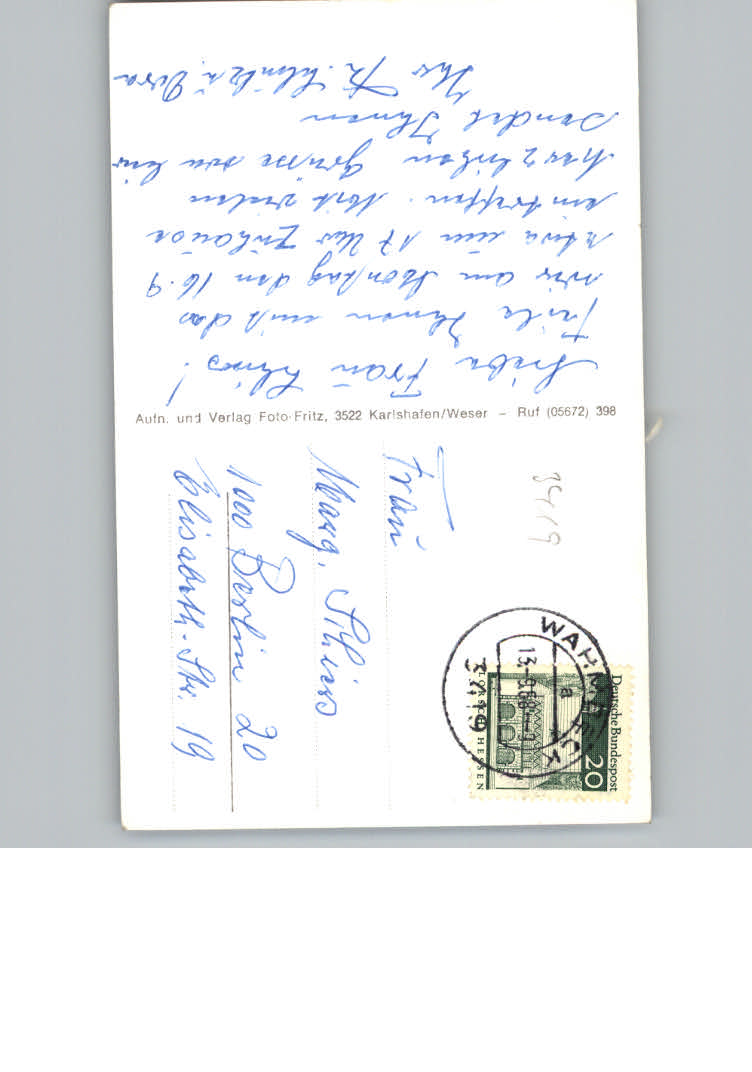 Liebe Frau Schims!
Teile Ihnen mit das
wir am Montag den 16.9
etwa um 17 Uhr Zuhause
ein treffen. Mit vielen
herzlichen Grüsse von hir
Sendet Ihnen
Ihr Fr.
Aufn. und Verlag Foto-Fritz, 3522 Karlshafen/Weser – Ruf (05672) 398
Frau
Marg.
1000 Berlin 20
Elisabeth-Str. 19
3419
WAHMBECK
13.-9.68
a
3419
Deutsche Bundespost
20
LORSCH HESSEN